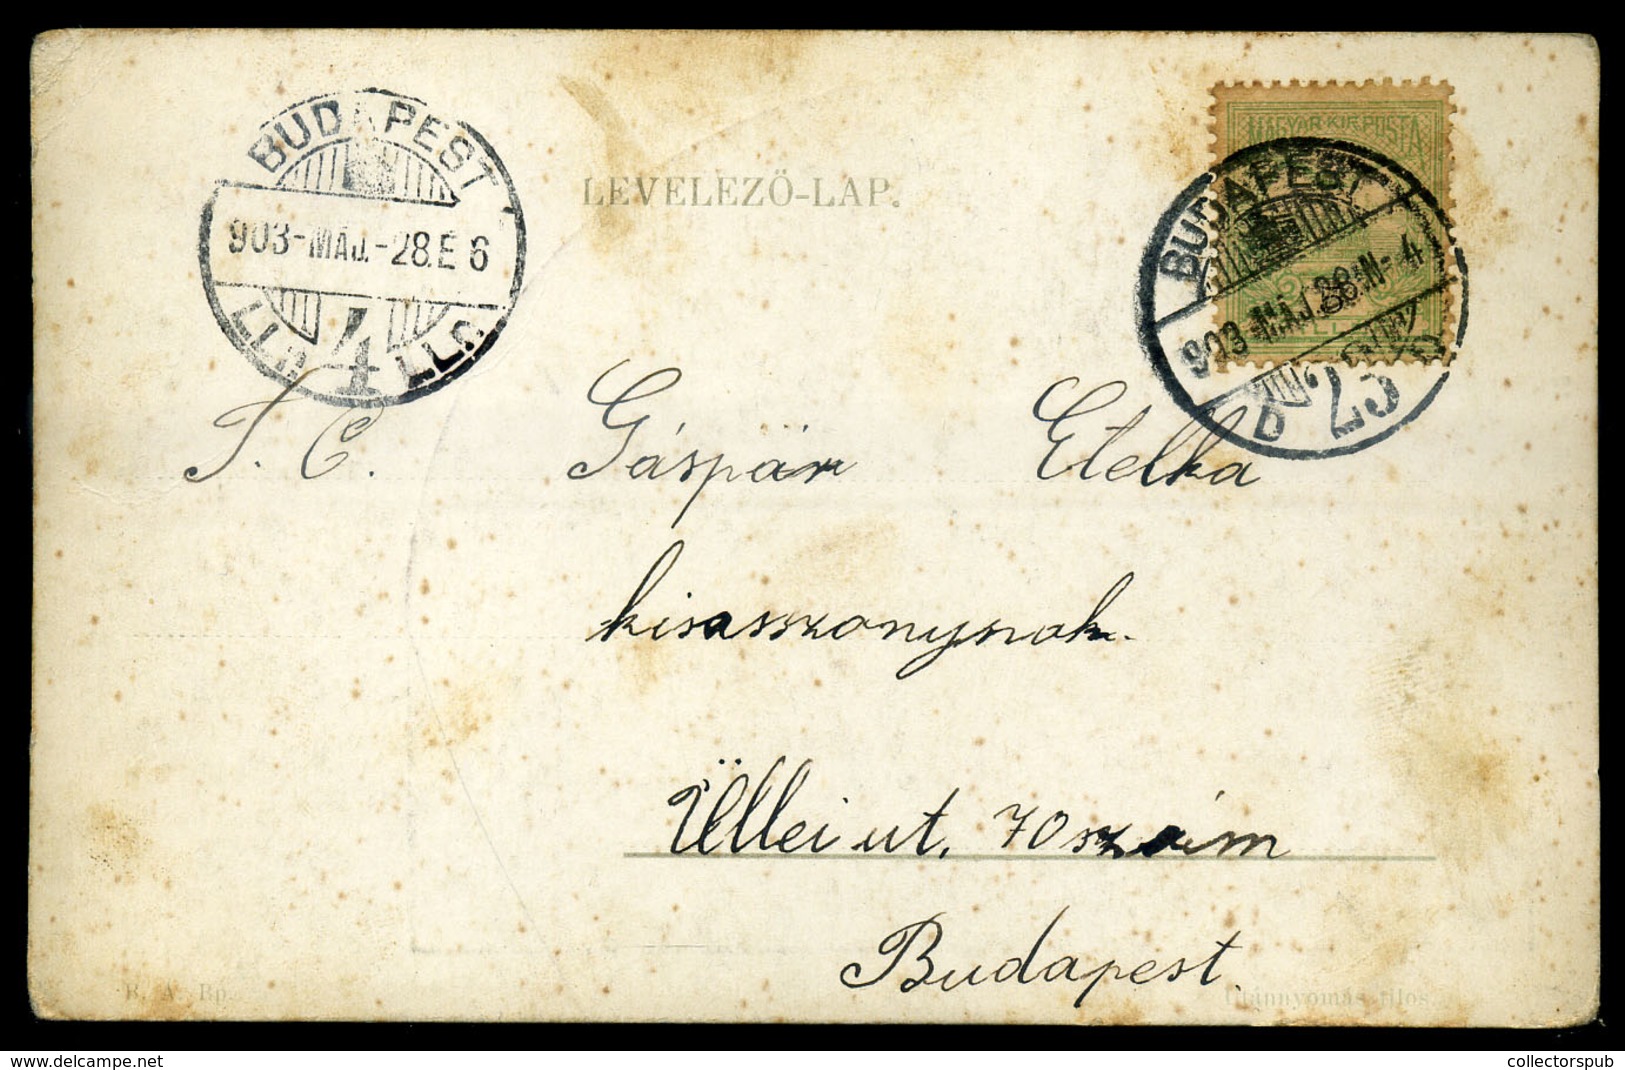 BUDAPEST
903-MÁJ.-28.E 6
4
LEVELEZŐ-LAP.
MAGYAR KIR. POSTA
BUDAPEST
903-MÁJ.28.N- 4
D 23 D
T. C. Gáspár Etelka
kisasszonynak.
Üllei ut. 70 szám
Budapest.
B. A. Bp.
Utánnyomás tilos.
delcampe.net
collectorspub